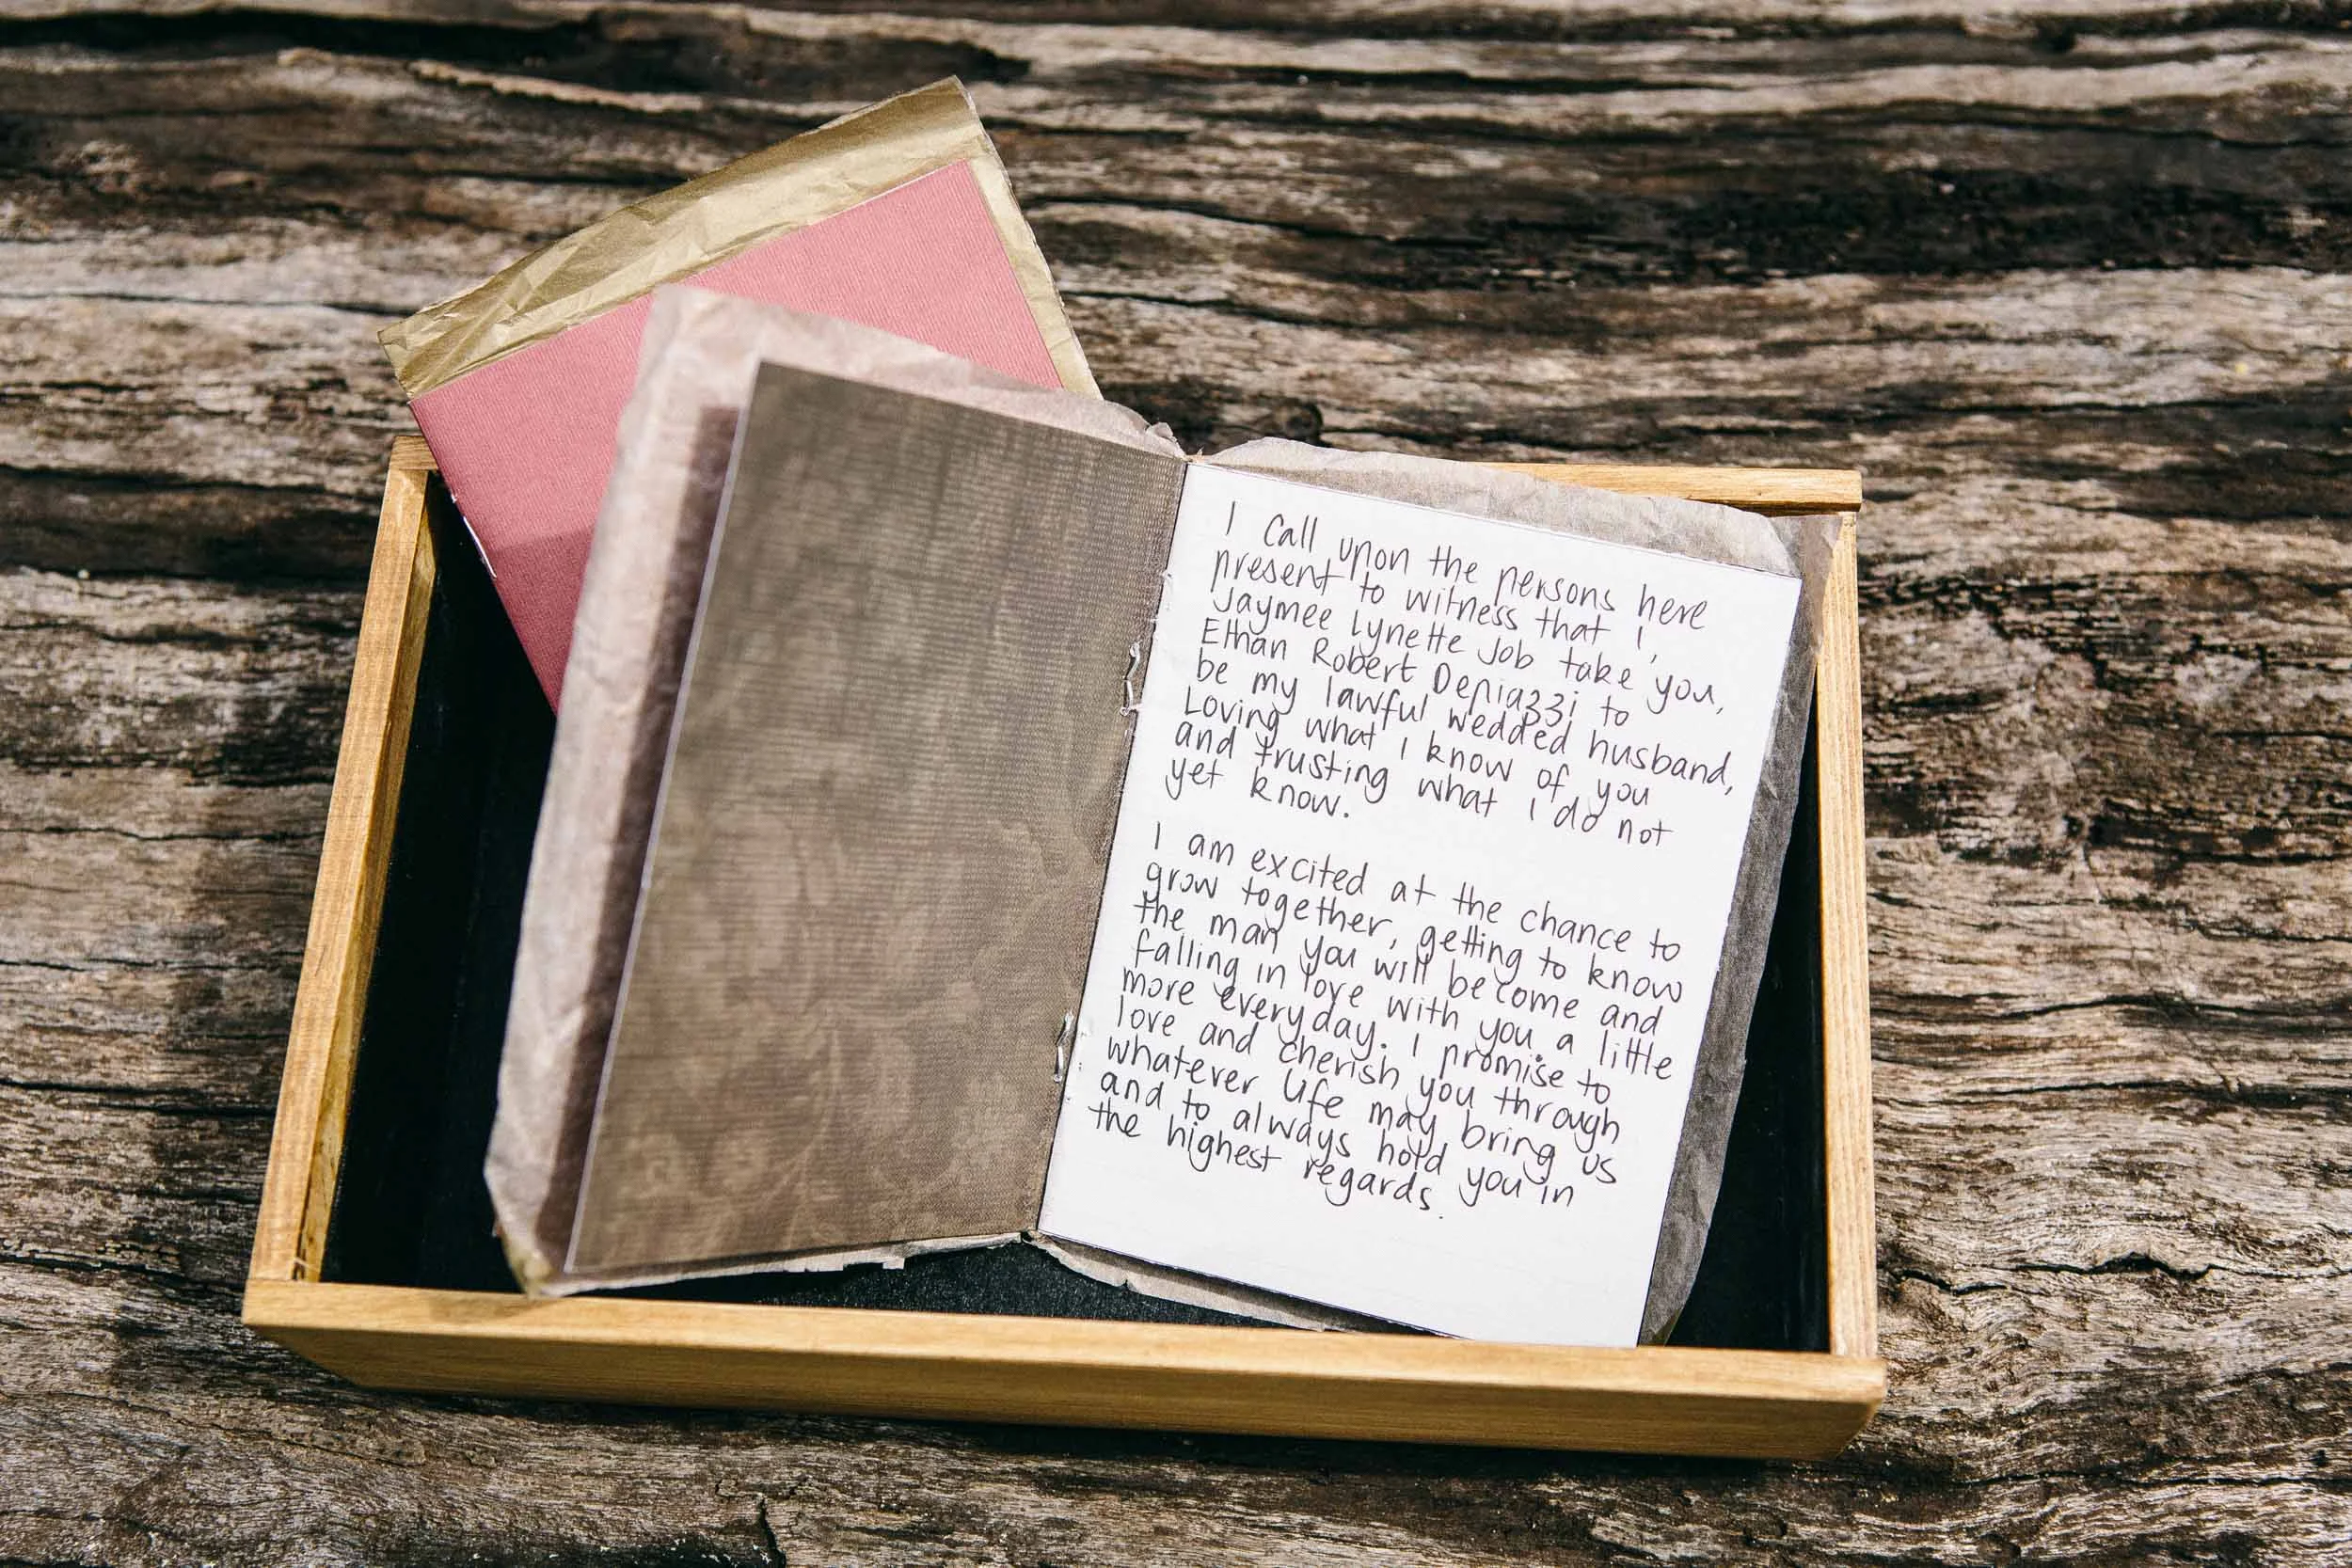 I call upon the persons here
present to witness that I,
Jaymee Lynette Job take you,
Ethan Robert Depiazzi to
be my lawful wedded husband,
Loving what I know of you
and trusting what I do not
yet know.
I am excited at the chance to
grow together, getting to know
the man you will become and
falling in love with you a little
more everyday. I promise to
love and cherish you through
whatever life may bring us
and to always hold you in
the highest regards.